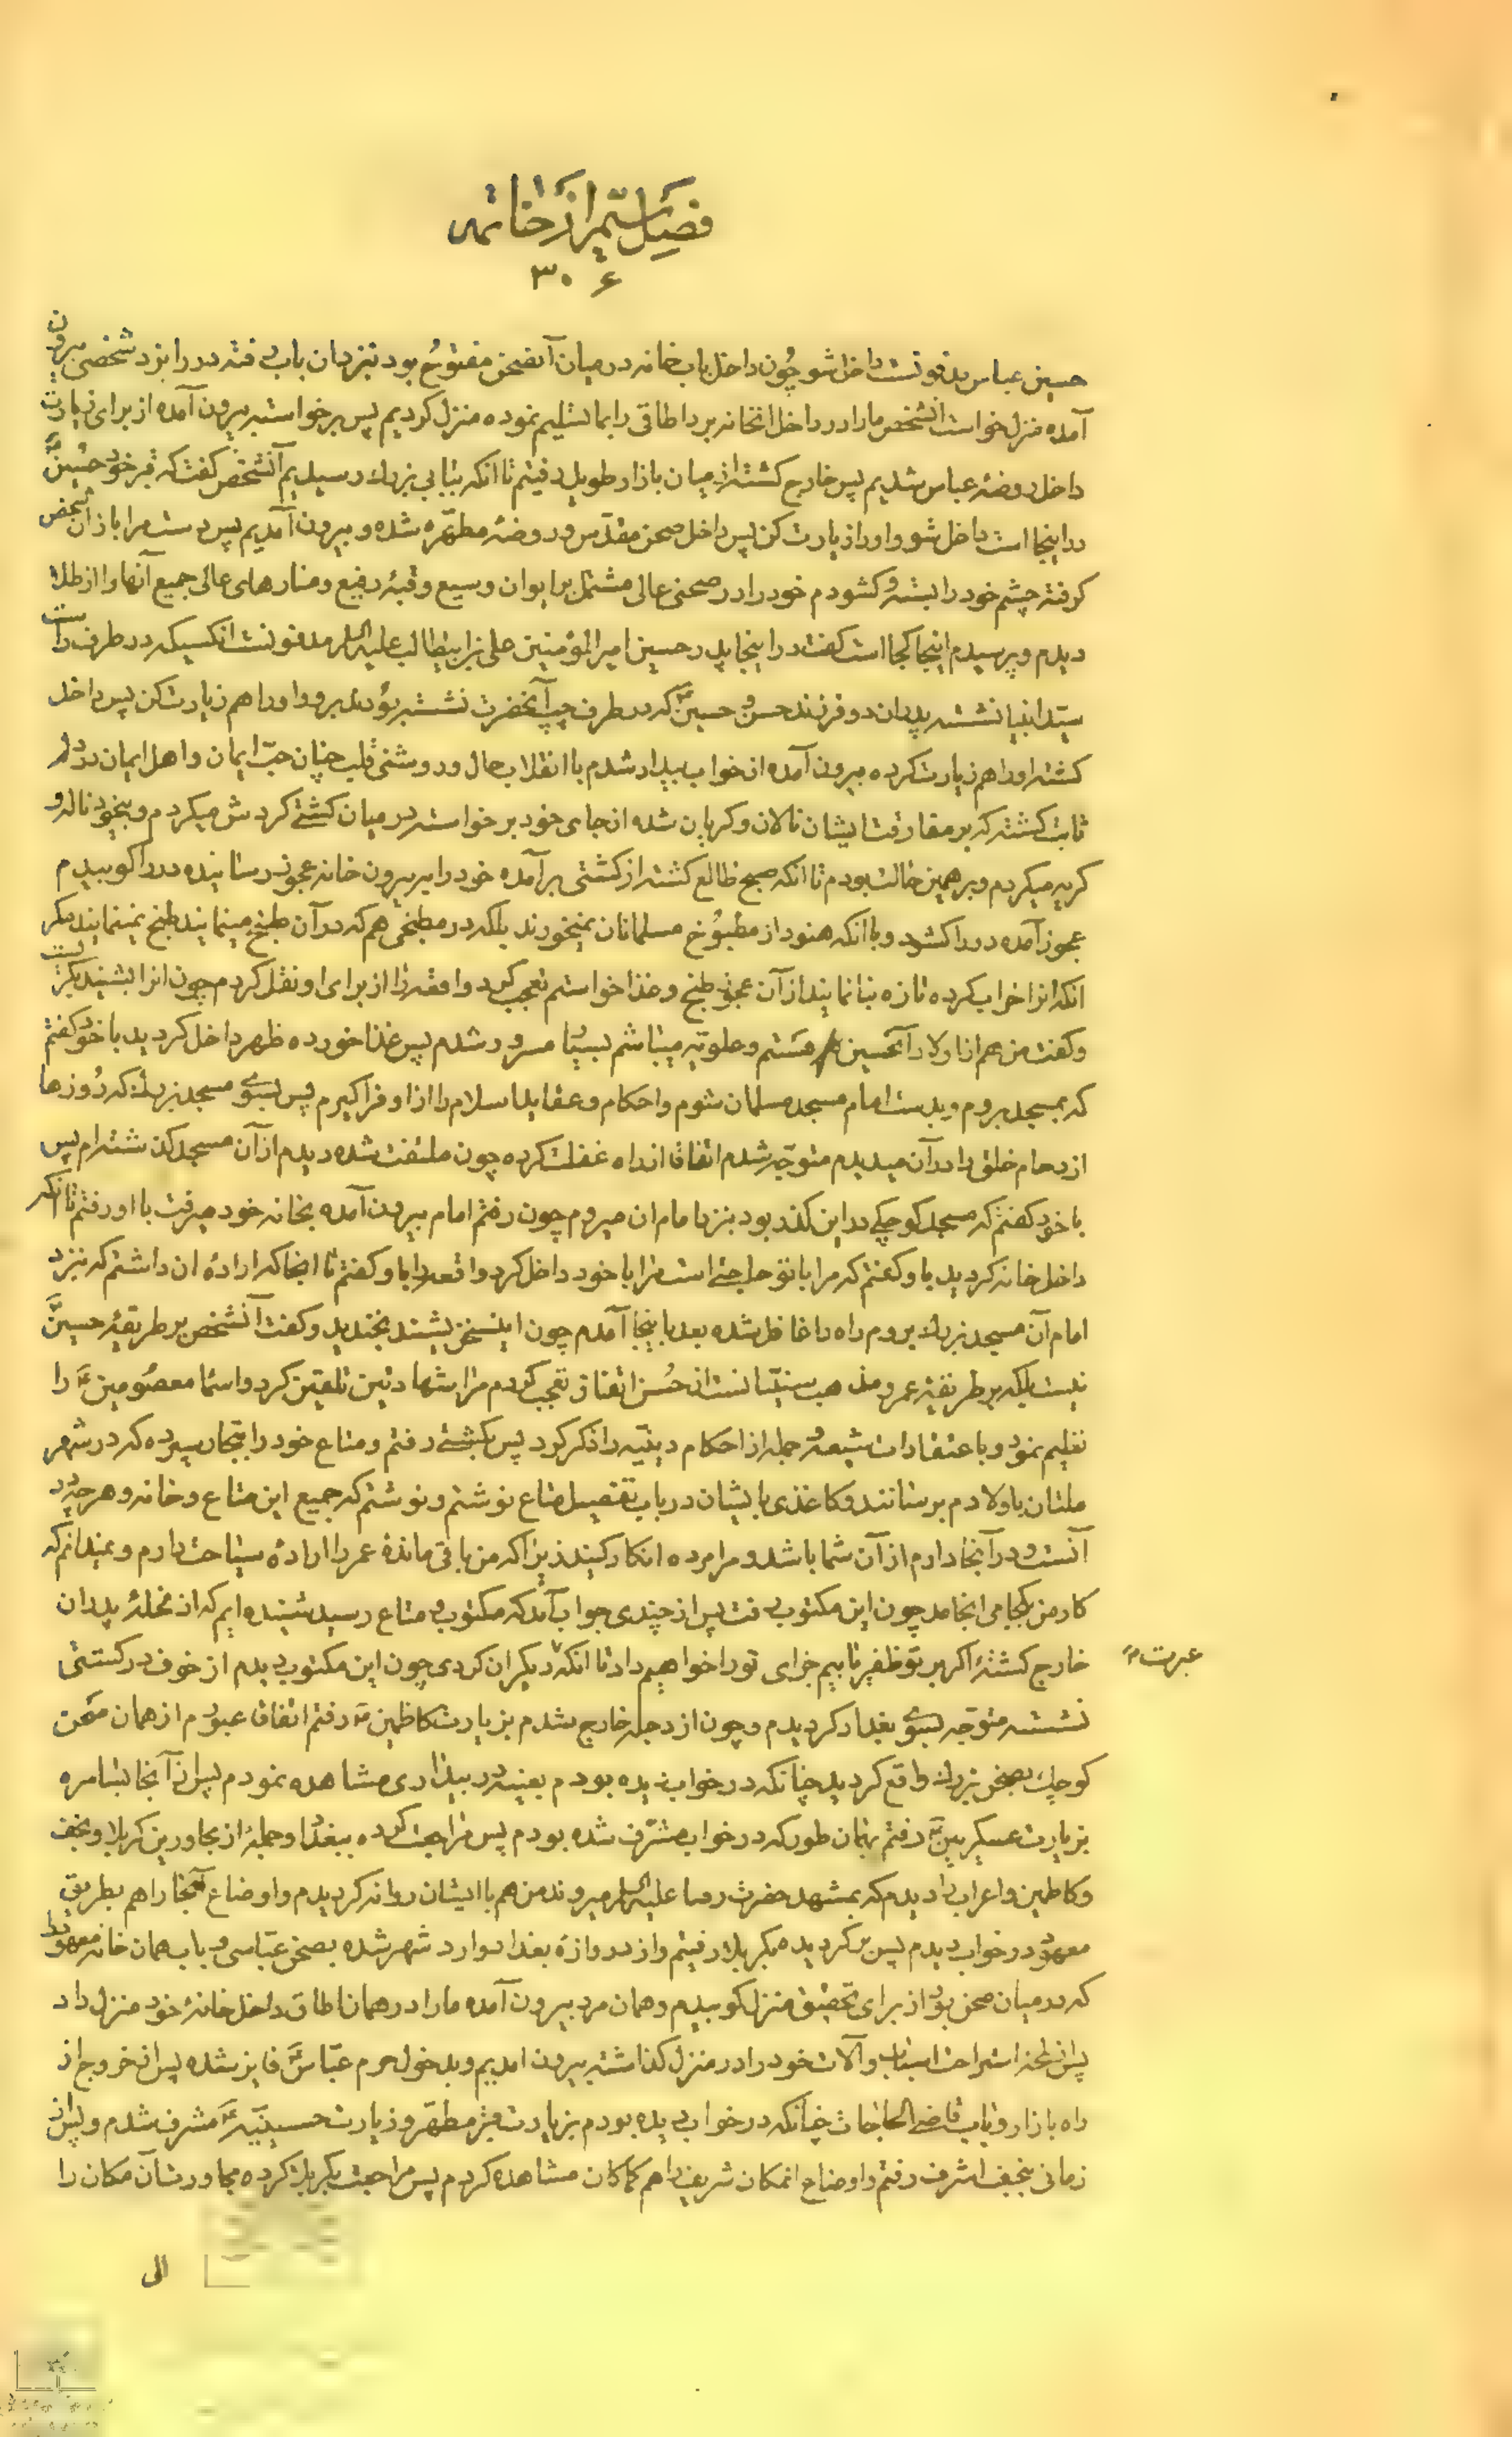 فصل ستم از خاتمه
۳۰۶
حسین عباس مدفونست داخل شو چون داخل باب خانه در میان آنصحن مفتوح بود نیز بآن باب رفته در را بزد شخصی بیرون
آمده منزل خواست آنشخص ما را در داخل انخانه برد اطاقی را بما تسلیم نموده منزل کردیم پس برخواسته بیرون آمده از برای زیارت
داخل روضهٔ عباس شدیم پس خارج گشته از میان بازار طویل رفتیم تا انکه ببابی بزرك رسیدیم آنشخص گفت که قبر خود حسینؑ
در اینجا است داخل شو و او را زیارت کن پس داخل صحن مقدس و روضهٔ مطهره شده و بیرون آمدیم پس دست مرا باز آن شخص
گرفته چشم خود را بسته و گشودم خود را در صحنی عالی مشتمل بر ایوان وسیع و قبهٔ رفیع و منارهای عالی جمیع آنها را از طلا
دیدم و پرسیدم اینجا کجا است گفت در اینجا پدر حسین امیر المؤمنین علی بن ابیطالب علیه السلم مدفونست انکسیکه در طرف راست
سید انبیا نشسته پدر ان دو فرزند حسن و حسینؑ که در طرف چپ آنحضرت نشسته بودند برو و او را هم زیارت کن پس داخل
گشته او را هم زیارت کرده بیرون آمده از خواب بیدار شدم با انقلاب حال و روشنی قلب چنان حبّ ایمان و اهل ایمان در دلم
ثابت گشته که بر مفارقت ایشان نالان و گریان شده از جای خود برخواسته در میان کشتی گردش میکردم و بیخود ناله و
گریه میکردم و بر همین حالت بودم تا انکه صبح طالع گشته از کشتی برآمده خود را به بیرون خانه عجوز رسانیده در را کوبیدم
عجوز آمده در را گشود و با انکه هنود از مطبوخ مسلمانان نمیخورند بلکه در مطبخی هم که در آن طبخ مینمایند طبخ نمینمایند مگر
انکه انرا خراب کرده تازه بنا نمایند از آن عجوز طبخ و غذا خواستم تعجب کرد واقعه را از برای او نقل کردم چون انرا بشنید بگریست
و گفت من هم از اولاد آنحسین هستم و علویه میباشم بسیار مسرور شدم پس غذا خورده ظهر داخل گردید با خود گفتم
که بمسجد بروم و بدست امام مسجد مسلمان شوم و احکام و عقاید اسلام را از او فرا گیرم پس بسوی مسجد بزرك که روزها
ازدحام خلق را در آن میدیدم متوجه شدم اتفاقا از راه غفلت کرده چون ملتفت شده دیدم از آن مسجد گذشته ام پس
با خود گفتم که مسجد کوچکی در این گذر بود بنزد امام ان میروم چون رفتم امام بیرون آمده بخانه خود میرفت با او رفتم تا انکه
داخل خانه گردید باو گفتم که مرا با تو حاجتی است مرا با خود داخل کرد واقعه را باو گفتم تا انجا که ارادهٔ ان داشتم که نزد
امام آن مسجد بزرك بروم راه را غافل شده بعد باینجا آمدم چون اینسخن بشنید بخندید و گفت آنشخص بر طریقهٔ حسینؑ
نیست بلکه بر طریقهٔ عمر و مذهب سنیانست از حسن اتفاق تعجب کردم مرا شهادتین تلقین کرد و اسماء معصومینؑ را
تعلیم نمود و با عتقادات شیعه و جمله از احکام دینیه را ذکر کرد پس بکشتی رفتم و متاع خود را بتجار سپرده که در شهر
ملتان باولادم برسانند و کاغذی بایشان در باب تفصیل متاع نوشتم و نوشتم که جمیع این متاع و خانه و هرچه در
آنست و در آنجا دارم از آن شما باشد و مرا مرده انکارکنید زیرا که من باقی ماندهٔ عمر را ارادهٔ سیاحت دارم و نمیدانم که
کار من بکجا می انجامد چون این مکتوب رفت پس از چندی جواب آمد که مکتوب و متاع رسید شنیده ایم که از محلهٔ پدران
خارج گشتهٔ اگر بر تو ظفر یابیم جزای تو را خواهیم داد تا انکه دیگران عبرت گیرند چون این مکتوب دیدم از خوف در کشتی
عبرت
نشسته متوجه بسوی بغداد گردیدم و چون از دجله خارج شدم بزیارت کاظمینؑ رفتم اتفاقا عبورم از همان صحن
کوچك بصحن بزرك واقع گردید چنانکه در خواب دیده بودم بعینه در بیداری مشاهده نمودم پس از آنجا بسامره
بزیارت عسکریینؑ رفتم بهمان طور که در خواب مشرف شده بودم پس مراجعت کرده ببغداد و جملهٔ از مجاورین کربلا و نجف
و کاظمین و اعراب را دیدم که بمشهد حضرت رضا علیه السلم میروند من هم با ایشان روانه گردیدم و اوضاع آنجا را هم بطریق
معهود در خواب دیدم پس برگردیده بکربلا رفتیم و از دروازهٔ بغداد وارد شهر شده بصحن عباسی و باب همان خانه معهود
که در میان صحن بود از برای تحقیق منزل کوبیدم و همان مرد بیرون آمده ما را در همان اطاق داخل خانهٔ خود منزل داد
پس از لحظهٔ استراحت اسباب و آلات خود را در منزل گذاشته بیرون امدیم و بدخول حرم عباسؑ فایز شده پس از خروج از
راه بازار و باب قاضی الحاجات چنانکه در خواب دیده بودم بزیارت قبر مطهر و زیارت حسینیهؑ مشرف شدم و پس از
زمانی بنجف اشرف رفتم و اوضاع انمکان شریف را هم کماکان مشاهده کردم پس مراجعت بکربلا کرده مجاورت آن مکان را
الی